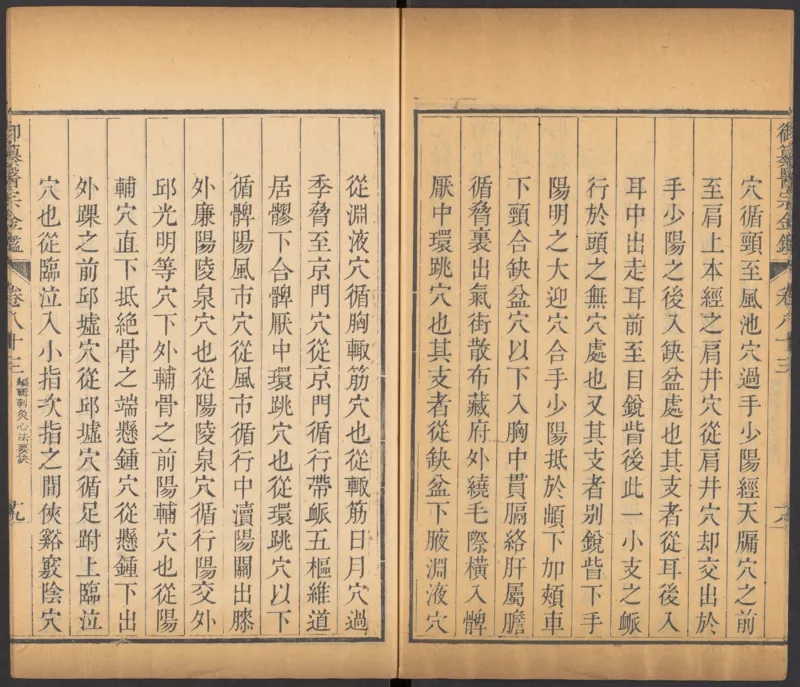 御纂醫宗金鑑 卷八十三
穴循頸至風池穴過手少陽經天牖穴之前
至肩上本經之肩井穴從肩井穴却交出於
手少陽之後入缺盆處也其支者從耳後入
耳中出走耳前至目銳眥後此一小支之脈
行於頭之無穴處也又其支者别銳眥下手
陽明之大迎穴合手少陽抵於䪼下加頰車
下頸合缺盆穴以下入胸中貫膈絡肝屬膽
循脅裏出氣街散布藏府外繞毛際橫入髀
厭中環跳穴也其支者從缺盆下腋淵液穴
從淵液穴循胸輙筋穴也從輙筋日月穴過
季脅至京門穴從京門循行帶脈五樞維道
居髎下合髀厭中環跳穴也從環跳穴以下
循髀陽風市穴從風市循行中瀆陽關出膝
外廉陽陵泉穴也從陽陵泉穴循行陽交外
邱光明等穴下外輔骨之前陽輔穴也從陽
輔穴直下抵絶骨之端懸鍾穴從懸鍾下出
外踝之前邱墟穴從邱墟穴循足跗上臨泣
穴也從臨泣入小指次指之間俠谿竅陰穴
御纂醫宗金鑑 卷八十三 編輯刺灸心法要訣